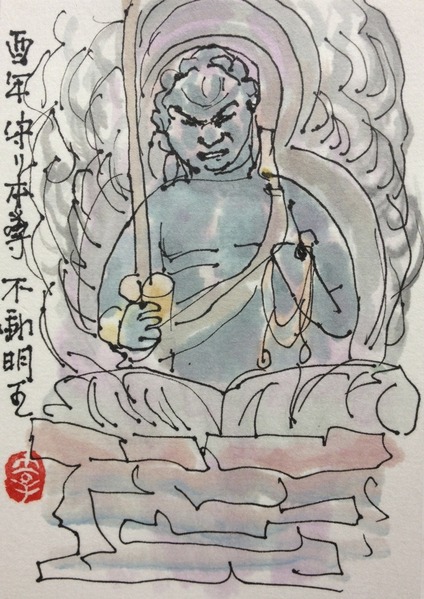 酉年守り本尊 不動明王